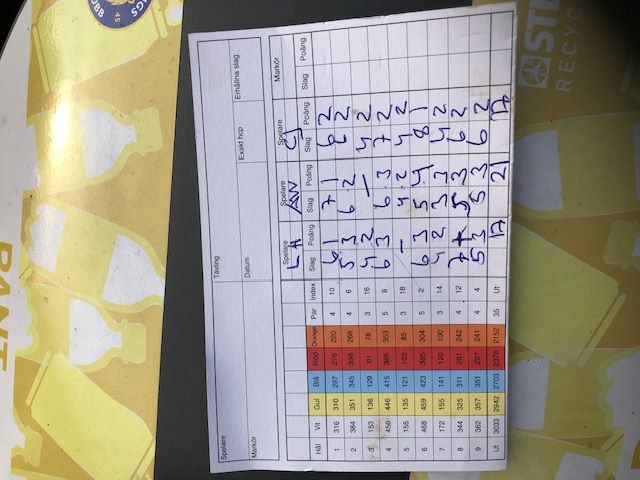 Tävling
Spelare
Datum
Markör
Exakt hcp
Erhållna slag
Spelare Spelare Spelare Markör
LH AW CJ
Hål Vit Gul Blå Röd Orange Par Index Slag Poäng Slag Poäng Slag Poäng Slag Poäng
1 316 310 287 276 220 4 10 6 1 7 1 6 2
2 384 351 345 4 6 5 3 6 2 6 2
3 153 136 129 91 78 3 16 4 2 — 4 2
4 456 446 415 385 353 5 8 6 3 6 3 7 2
5 155 135 121 102 85 3 18 — 4 2 4 2
6 468 459 423 385 304 5 2 6 3 5 4 8 1
7 172 155 141 120 100 3 14 4 2 3 3 4 2
8 344 325 311 281 242 4 12 7 5 3 6 2
9 362 357 351 241 4 4 5 3 5 3 6 2
Ut 3033 2942 2703 2378 2152 35 Ut 17 21 17
PANT
RECYC
45